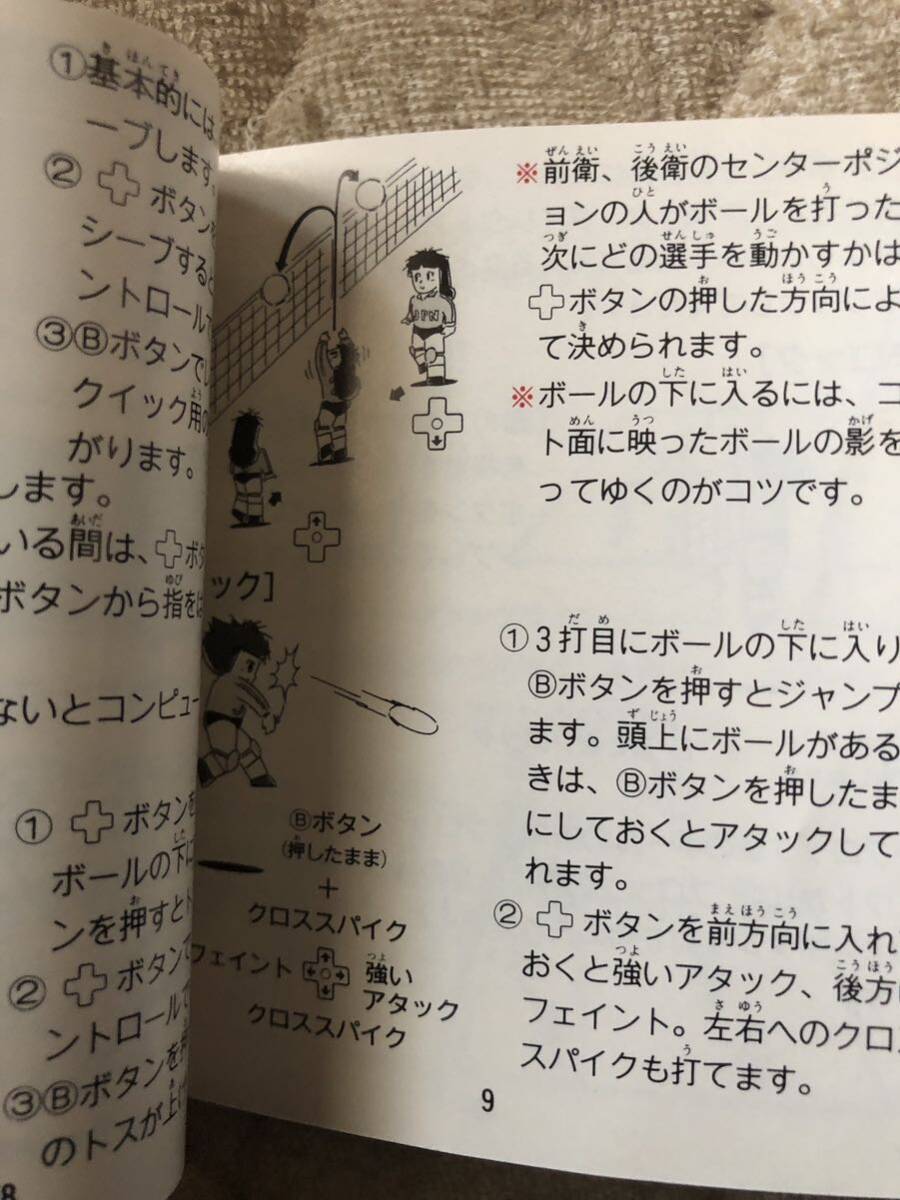 ①基本的には
ーブします。
② ボタンを
シーブすると
ントロールで
③Ⓑボタンでレ
クイック用の
がります。
します。
いる間は、ボタ
ボタンから指をは
ないとコンピュー
① ボタンを
ボールの下に
ンを押すとト
② ボタンで
ントロールで
③Ⓑボタンを押
のトスが上げ
8
JPN
ック]
Ⓑボタン
(押したまま)
+
クロススパイク
フェイント 強い
アタック
クロススパイク
※前衛、後衛のセンターポジ
ョンの人がボールを打った
次にどの選手を動かすかは
ボタンの押した方向によ
て決められます。
※ボールの下に入るには、コ
ト面に映ったボールの影を
ってゆくのがコツです。
①3打目にボールの下に入り
Ⓑボタンを押すとジャンプ
ます。頭上にボールがある
きは、Ⓑボタンを押したま
にしておくとアタックして
れます。
② ボタンを前方向に入れ
おくと強いアタック、後方に
フェイント。左右へのクロス
スパイクも打てます。
9